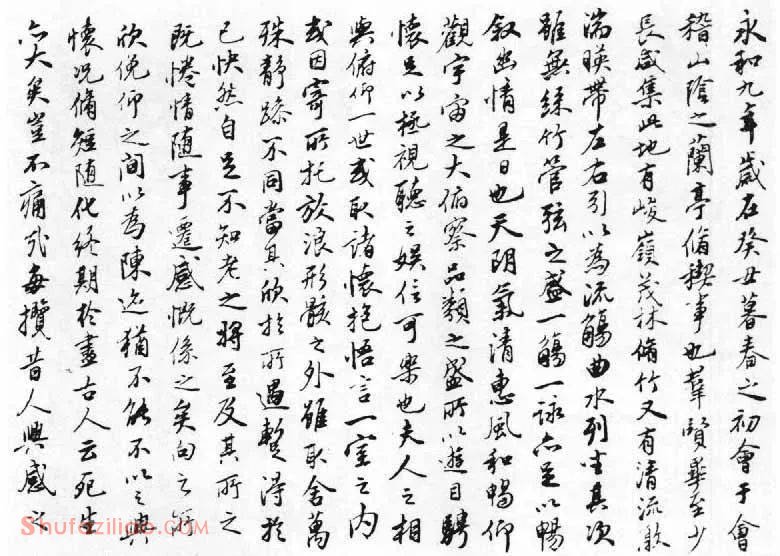 永和九年歲在癸丑暮春之初會于會
稽山陰之蘭亭脩禊事也羣賢畢至少
長咸集此地有峻嶺茂林脩竹又有清流激
湍暎帶左右引以為流觴曲水列坐其次
雖無絲竹管弦之盛一觴一詠亦足以暢
叙幽情是日也天朗氣清惠風和暢仰
觀宇宙之大俯察品類之盛所以遊目騁
懷足以極視聽之娛信可樂也夫人之相
與俯仰一世或取諸懷抱悟言一室之內
或因寄所托放浪形骸之外雖取舍萬
殊靜躁不同當其欣於所遇蹔得於
己快然自足不知老之將至及其所之
既惓情隨事遷感慨係之矣向之所
欣俛仰之間以為陳迹猶不能不以之興
懷況脩短隨化終期於盡古人云死生
亦大矣豈不痛哉每攬昔人興感之
Shufaziliao.COM